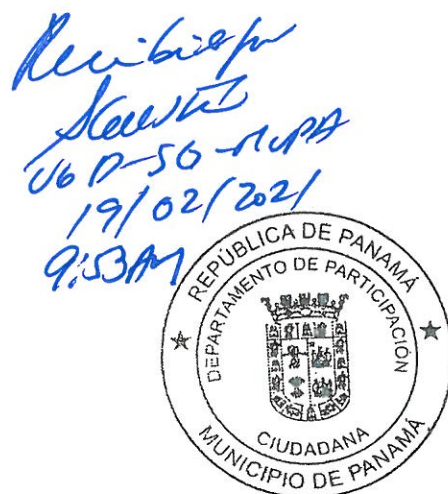 Recibido por
UGD-SG-MUPA
19/02/2021
9:53AM
REPÚBLICA DE PANAMÁ
DEPARTAMENTO DE PARTICIPACIÓN
CIUDADANA
MUNICIPIO DE PANAMÁ